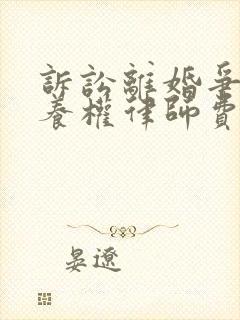 訴訟離婚爭
養權律師費
晏遼